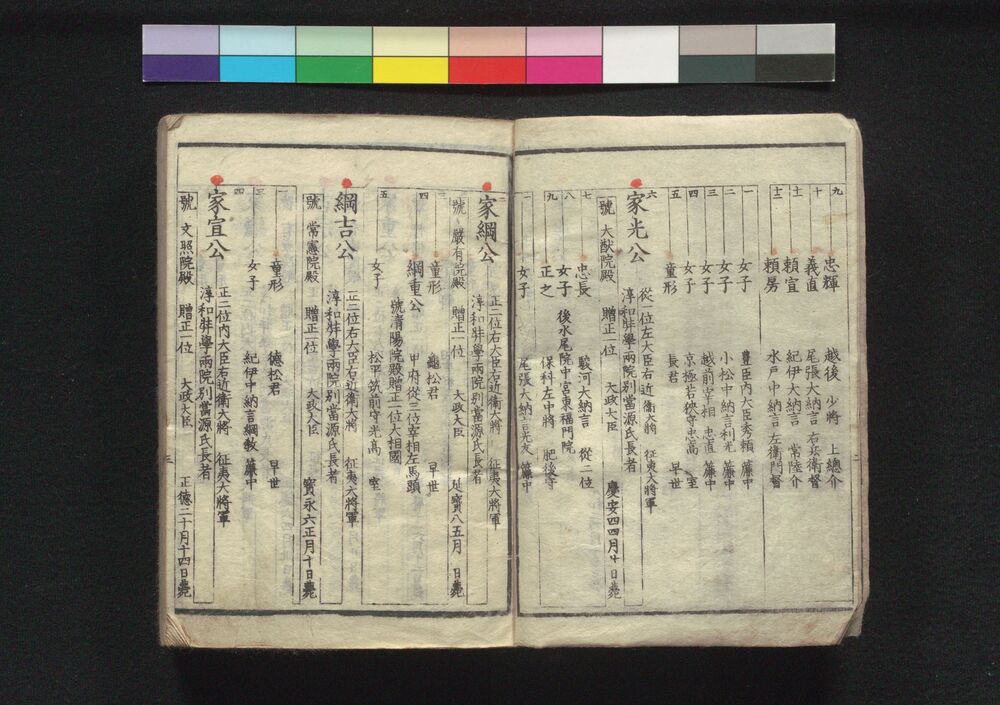 九 忠輝 越後 少將 上總介
十 義直 尾張大納言 右兵衛督
十一 頼宣 紀伊大納言 常陸介
十二 頼房 水戸中納言 左衛門督
一 女子 豊臣内大臣秀頼 簾中
二 女子 小松中納言利光 簾中
三 女子 越前宰相忠直 簾中
四 女子 京極若狹守忠高 室
五 童形 長君 早世
六 家光公 從一位左大臣右近衞大將 征夷大將軍
淳和弉學兩院別當源氏長者
號 大猷院殿 贈正一位 大政大臣 慶安四四月廿日薨
七 忠長 駿河大納言 從二位
八 女子 後水尾院中宮東福門院
九 正之 保科左中將 肥後守
一 女子 尾張大納言光友 簾中
二 家綱公 正二位右大臣右近衞大將 征夷大將軍
淳和弉學兩院別當源氏長者
號 嚴有院殿 贈正一位 大政大臣 延寳八五月 日薨
三 童形 龜松君 早世
四 綱重公 甲府從三位宰相左馬頭
號清陽院殿贈正一位大相國
女子 松平筑前守光高 室
五 綱吉公 正二位右大臣右近衞大將 征夷大將軍
淳和弉學兩院別當源氏長者
號 常憲院殿 贈正一位 大政大臣 寳永六正月十日薨
一 童形 德松君 早世
二 女子 紀伊中納言綱教 簾中
四 家宣公 正二位内大臣右近衞大將 征夷大將軍
淳和弉學兩院別當源氏長者
號 文照院殿 贈正一位 大政大臣 正德二十月十四日薨
三